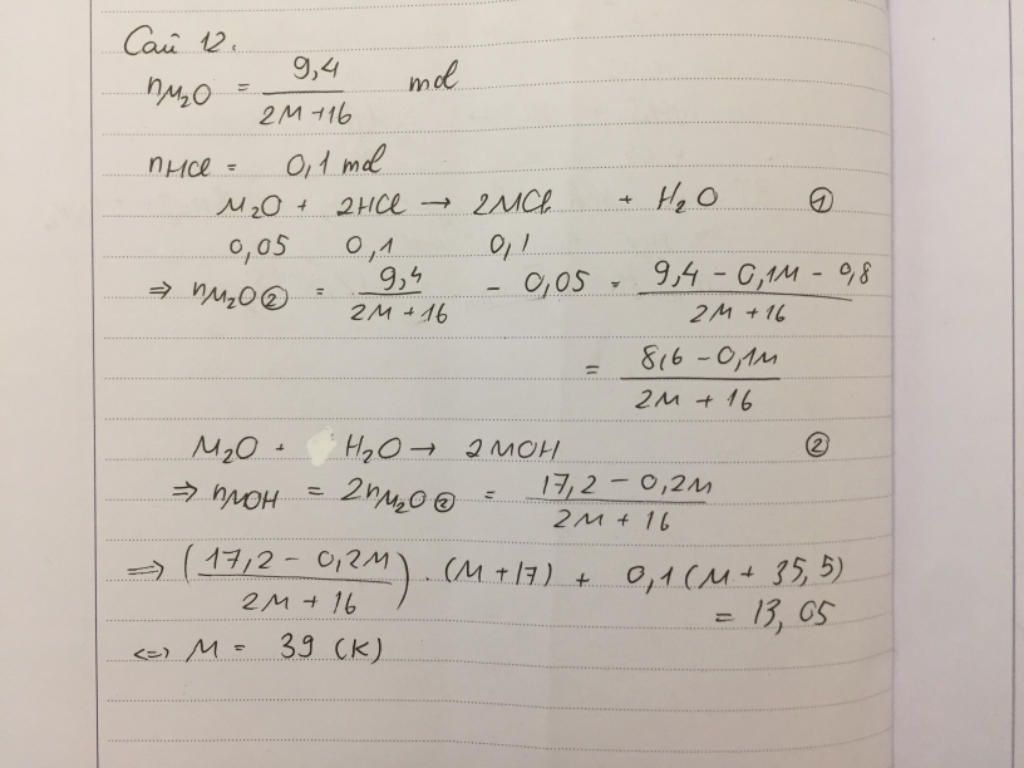 Câu 12.
nM₂O = 9,4 / (2M+16) mol
nHCl = 0,1 mol
M₂O + 2HCl → 2MCl + H₂O ①
0,05 0,1 0,1
⇒ nM₂O② = 9,4 / (2M+16) - 0,05 = (9,4 - 0,1M - 0,8) / (2M+16)
= (8,6 - 0,1M) / (2M+16)
M₂O + H₂O → 2MOH ②
⇒ nMOH = 2nM₂O② = (17,2 - 0,2M) / (2M+16)
⇒ ((17,2 - 0,2M) / (2M+16)) . (M+17) + 0,1(M+35,5)
= 13,05
<=> M = 39 (K)